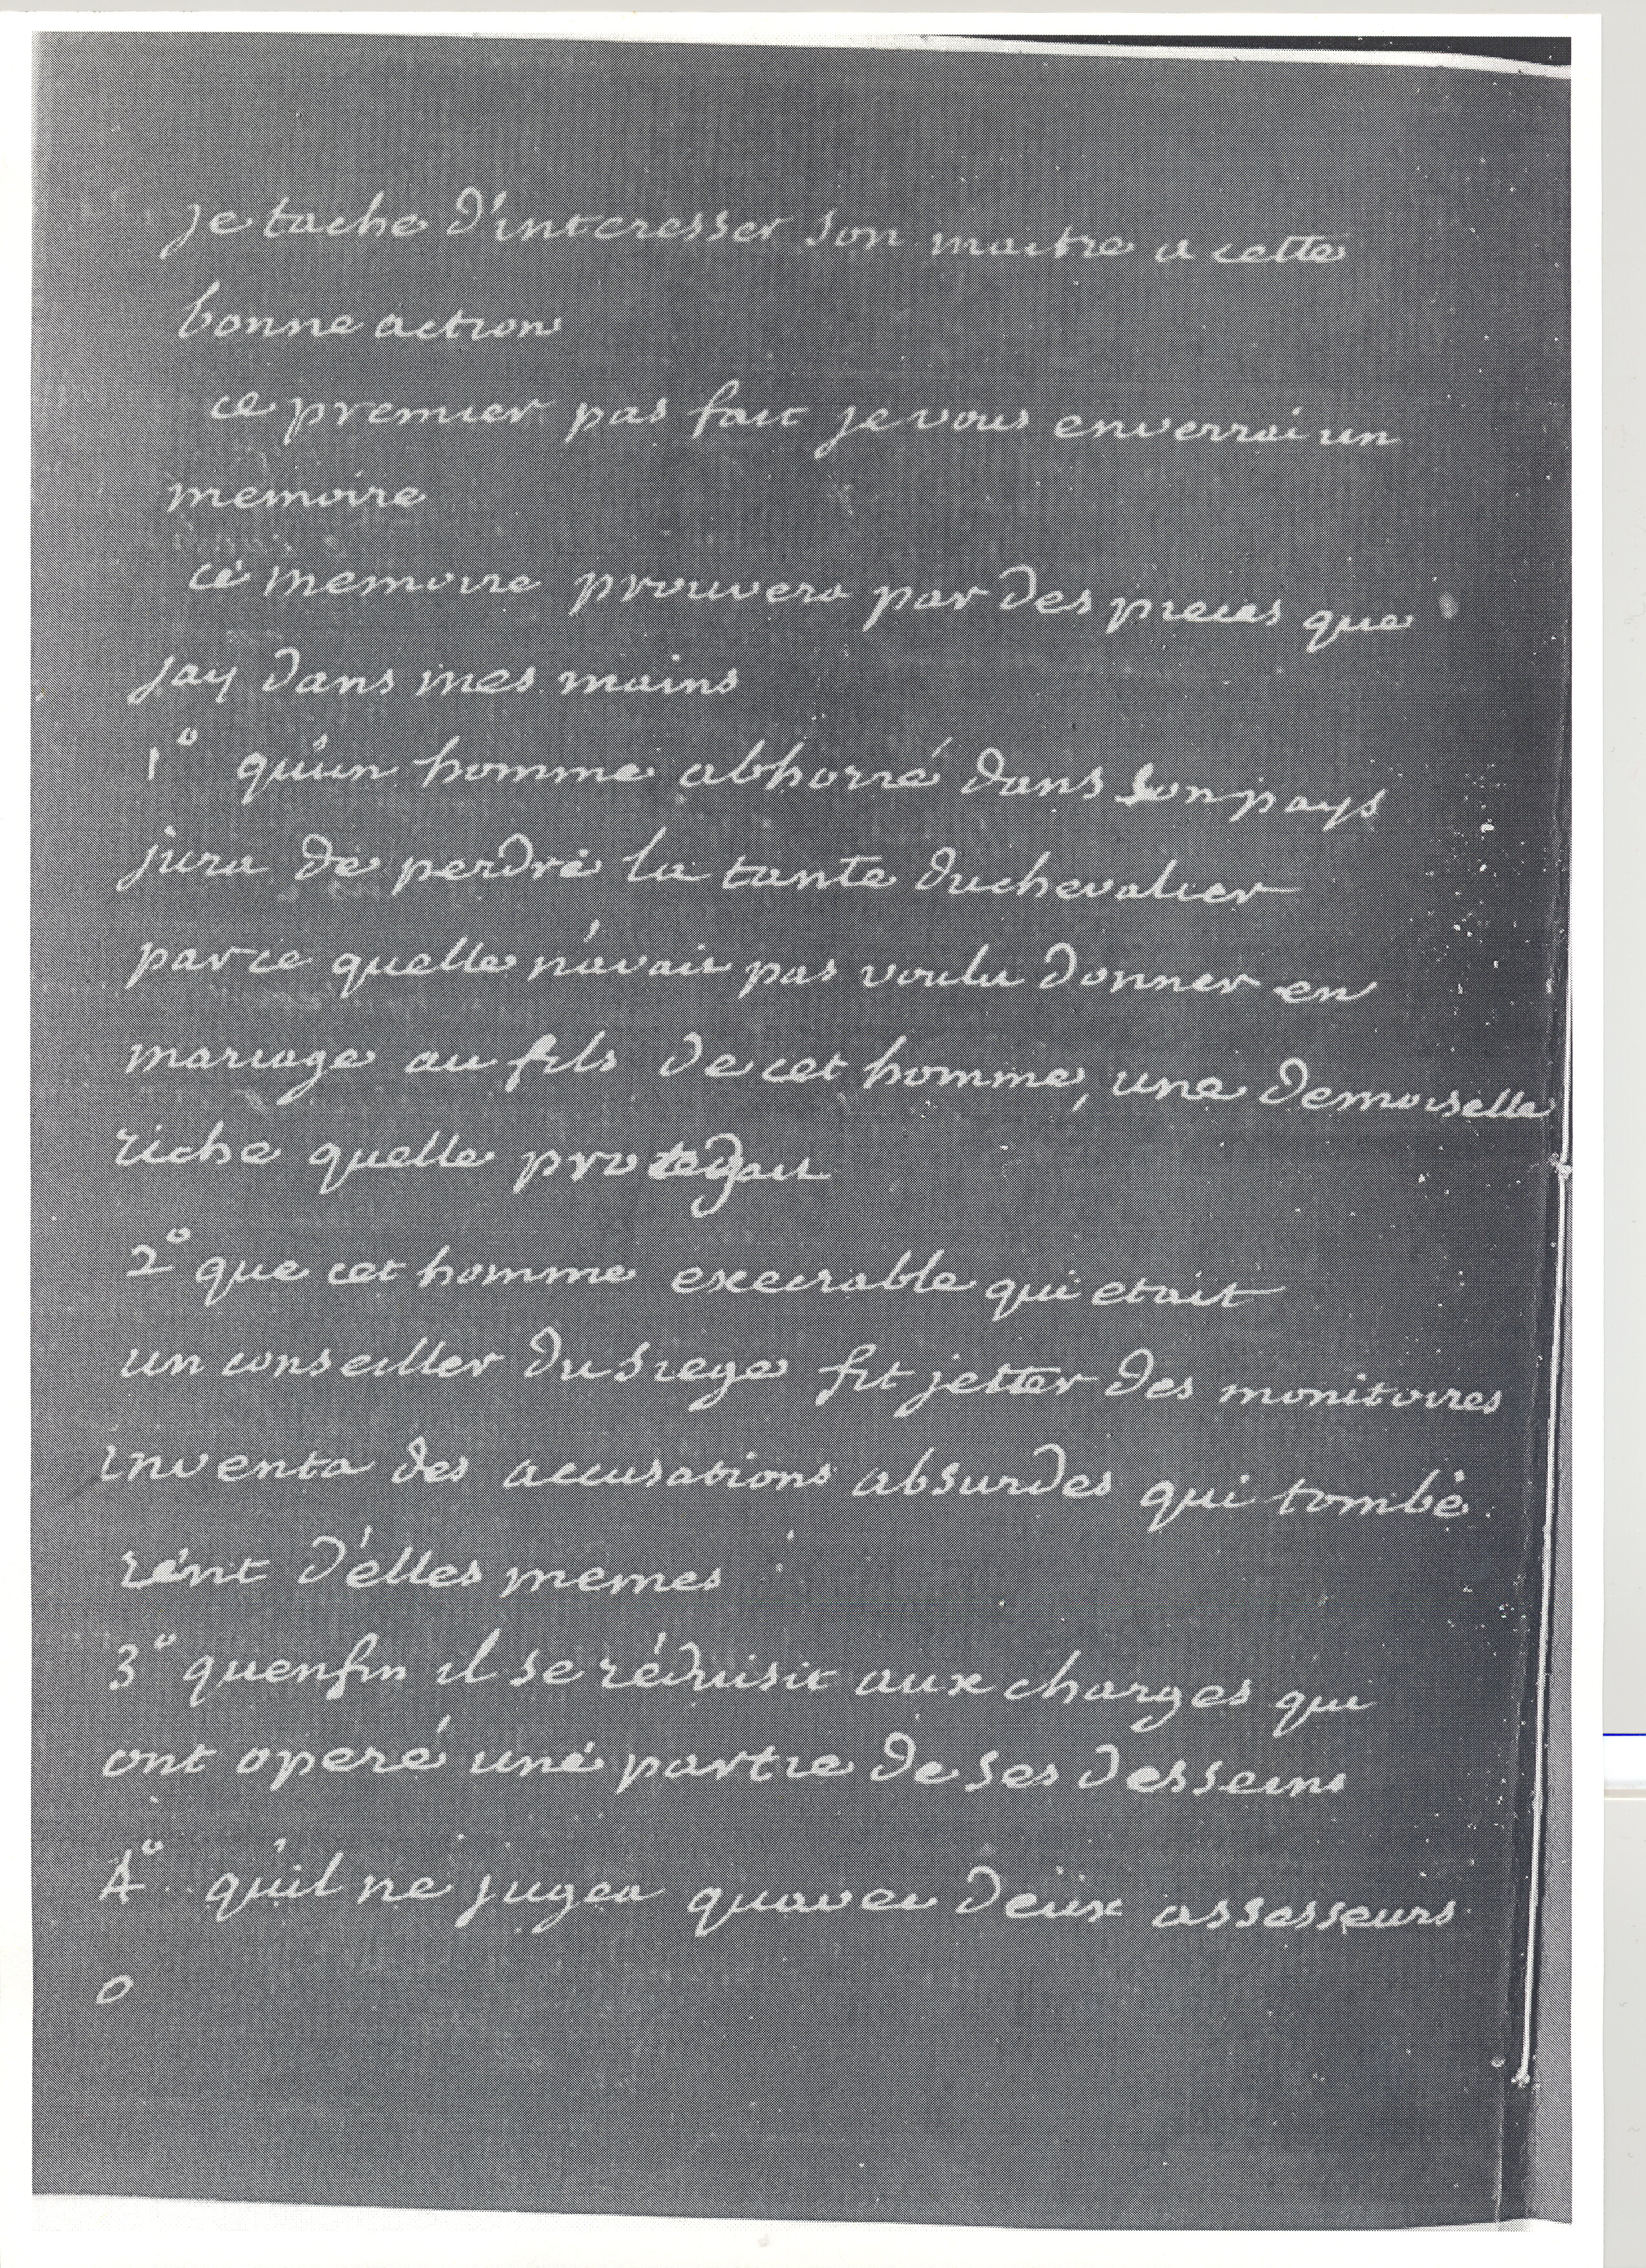 je tache d'interesser son maitre a cette
bonne action
ce premier pas fait je vous enverrai un
memoire
ce memoire prouvera par des pieces que
jay dans mes mains
1° qu'un homme abhorré dans son pays
jura de perdre la tante du chevalier
parce quelle n'avait pas voulu donner en
mariage au fils de cet homme, une demoiselle
riche quelle protegait
2° que cet homme execrable qui etait
un conseiller du siege fit jetter des monitoires
inventa des accusations absurdes qui tombè
rent d'elles memes
3° quenfin il se réduisit aux charges qui
ont operé une partie de ses desseins
4° qu'il ne jugea quavec deux assesseurs
o